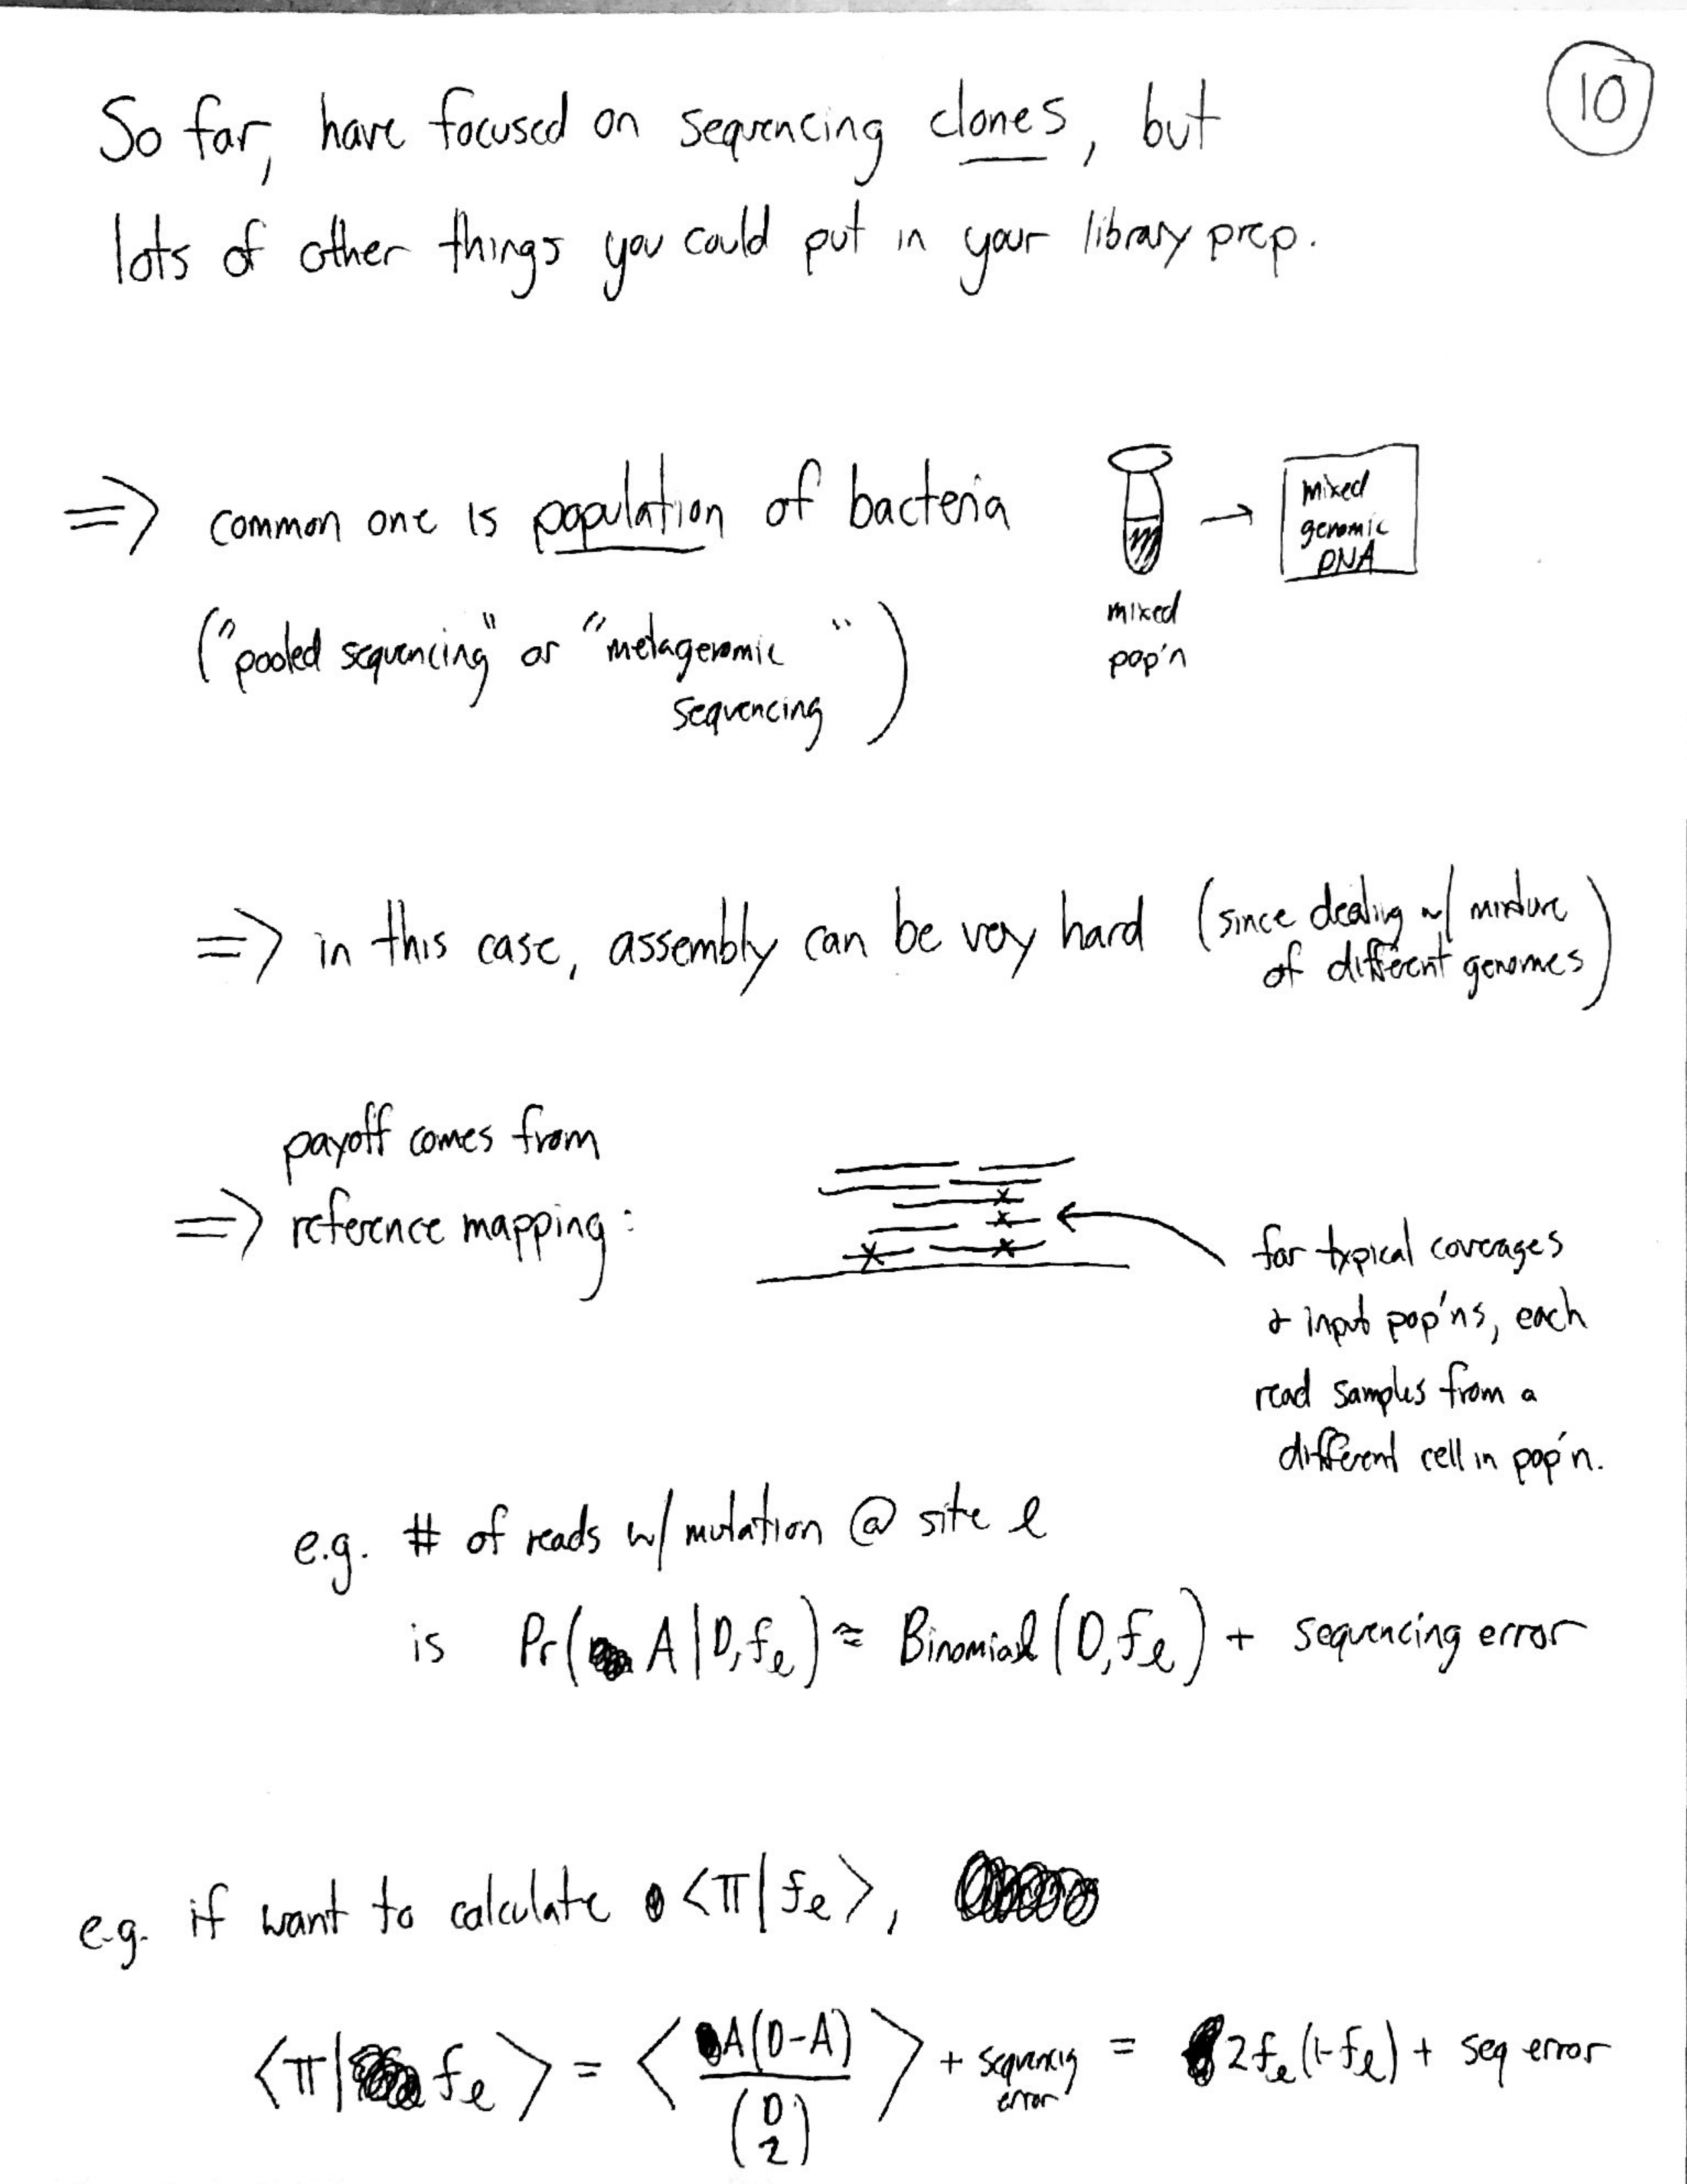 10
So far, have focused on sequencing clones, but
lots of other things you could put in your library prep.
=> common one is population of bacteria
("pooled sequencing" or "metagenomic
sequencing")
mixed
pop'n
→
mixed
genomic
DNA
=> in this case, assembly can be very hard (since dealing w/ mixture
of different genomes)
payoff comes from
=> reference mapping:
for typical coverages
& input pop'ns, each
read samples from a
different cell in pop'n.
e.g. # of reads w/ mutation @ site ℓ
is Pr(A|D,fℓ) ≈ Binomial(D,fℓ) + sequencing error
e.g. if want to calculate <π|fℓ>,
<π|fℓ> = <A(D-A) / (D 2)> + sequencing error = 2fℓ(1-fℓ) + seq error